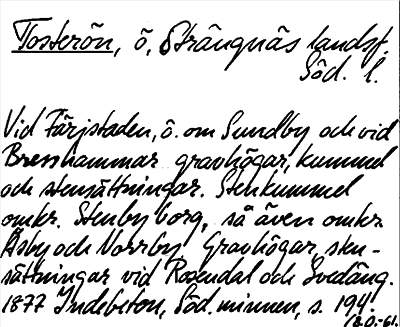 Tosterön, ö, Strängnäs landsf.
Söd. l.
Vid Färjstaden, ö. om Sundby och vid
Bresshammar gravhögar, kummel
och stensättningar. Stenkummel
omkr. Stenby borg, så även omkr.
Åsby och Norrby. Gravhögar, sten-
sättningar vid Rosendal och Svedäng.
1877 Indebetou, Söd. minnen, s. 194.